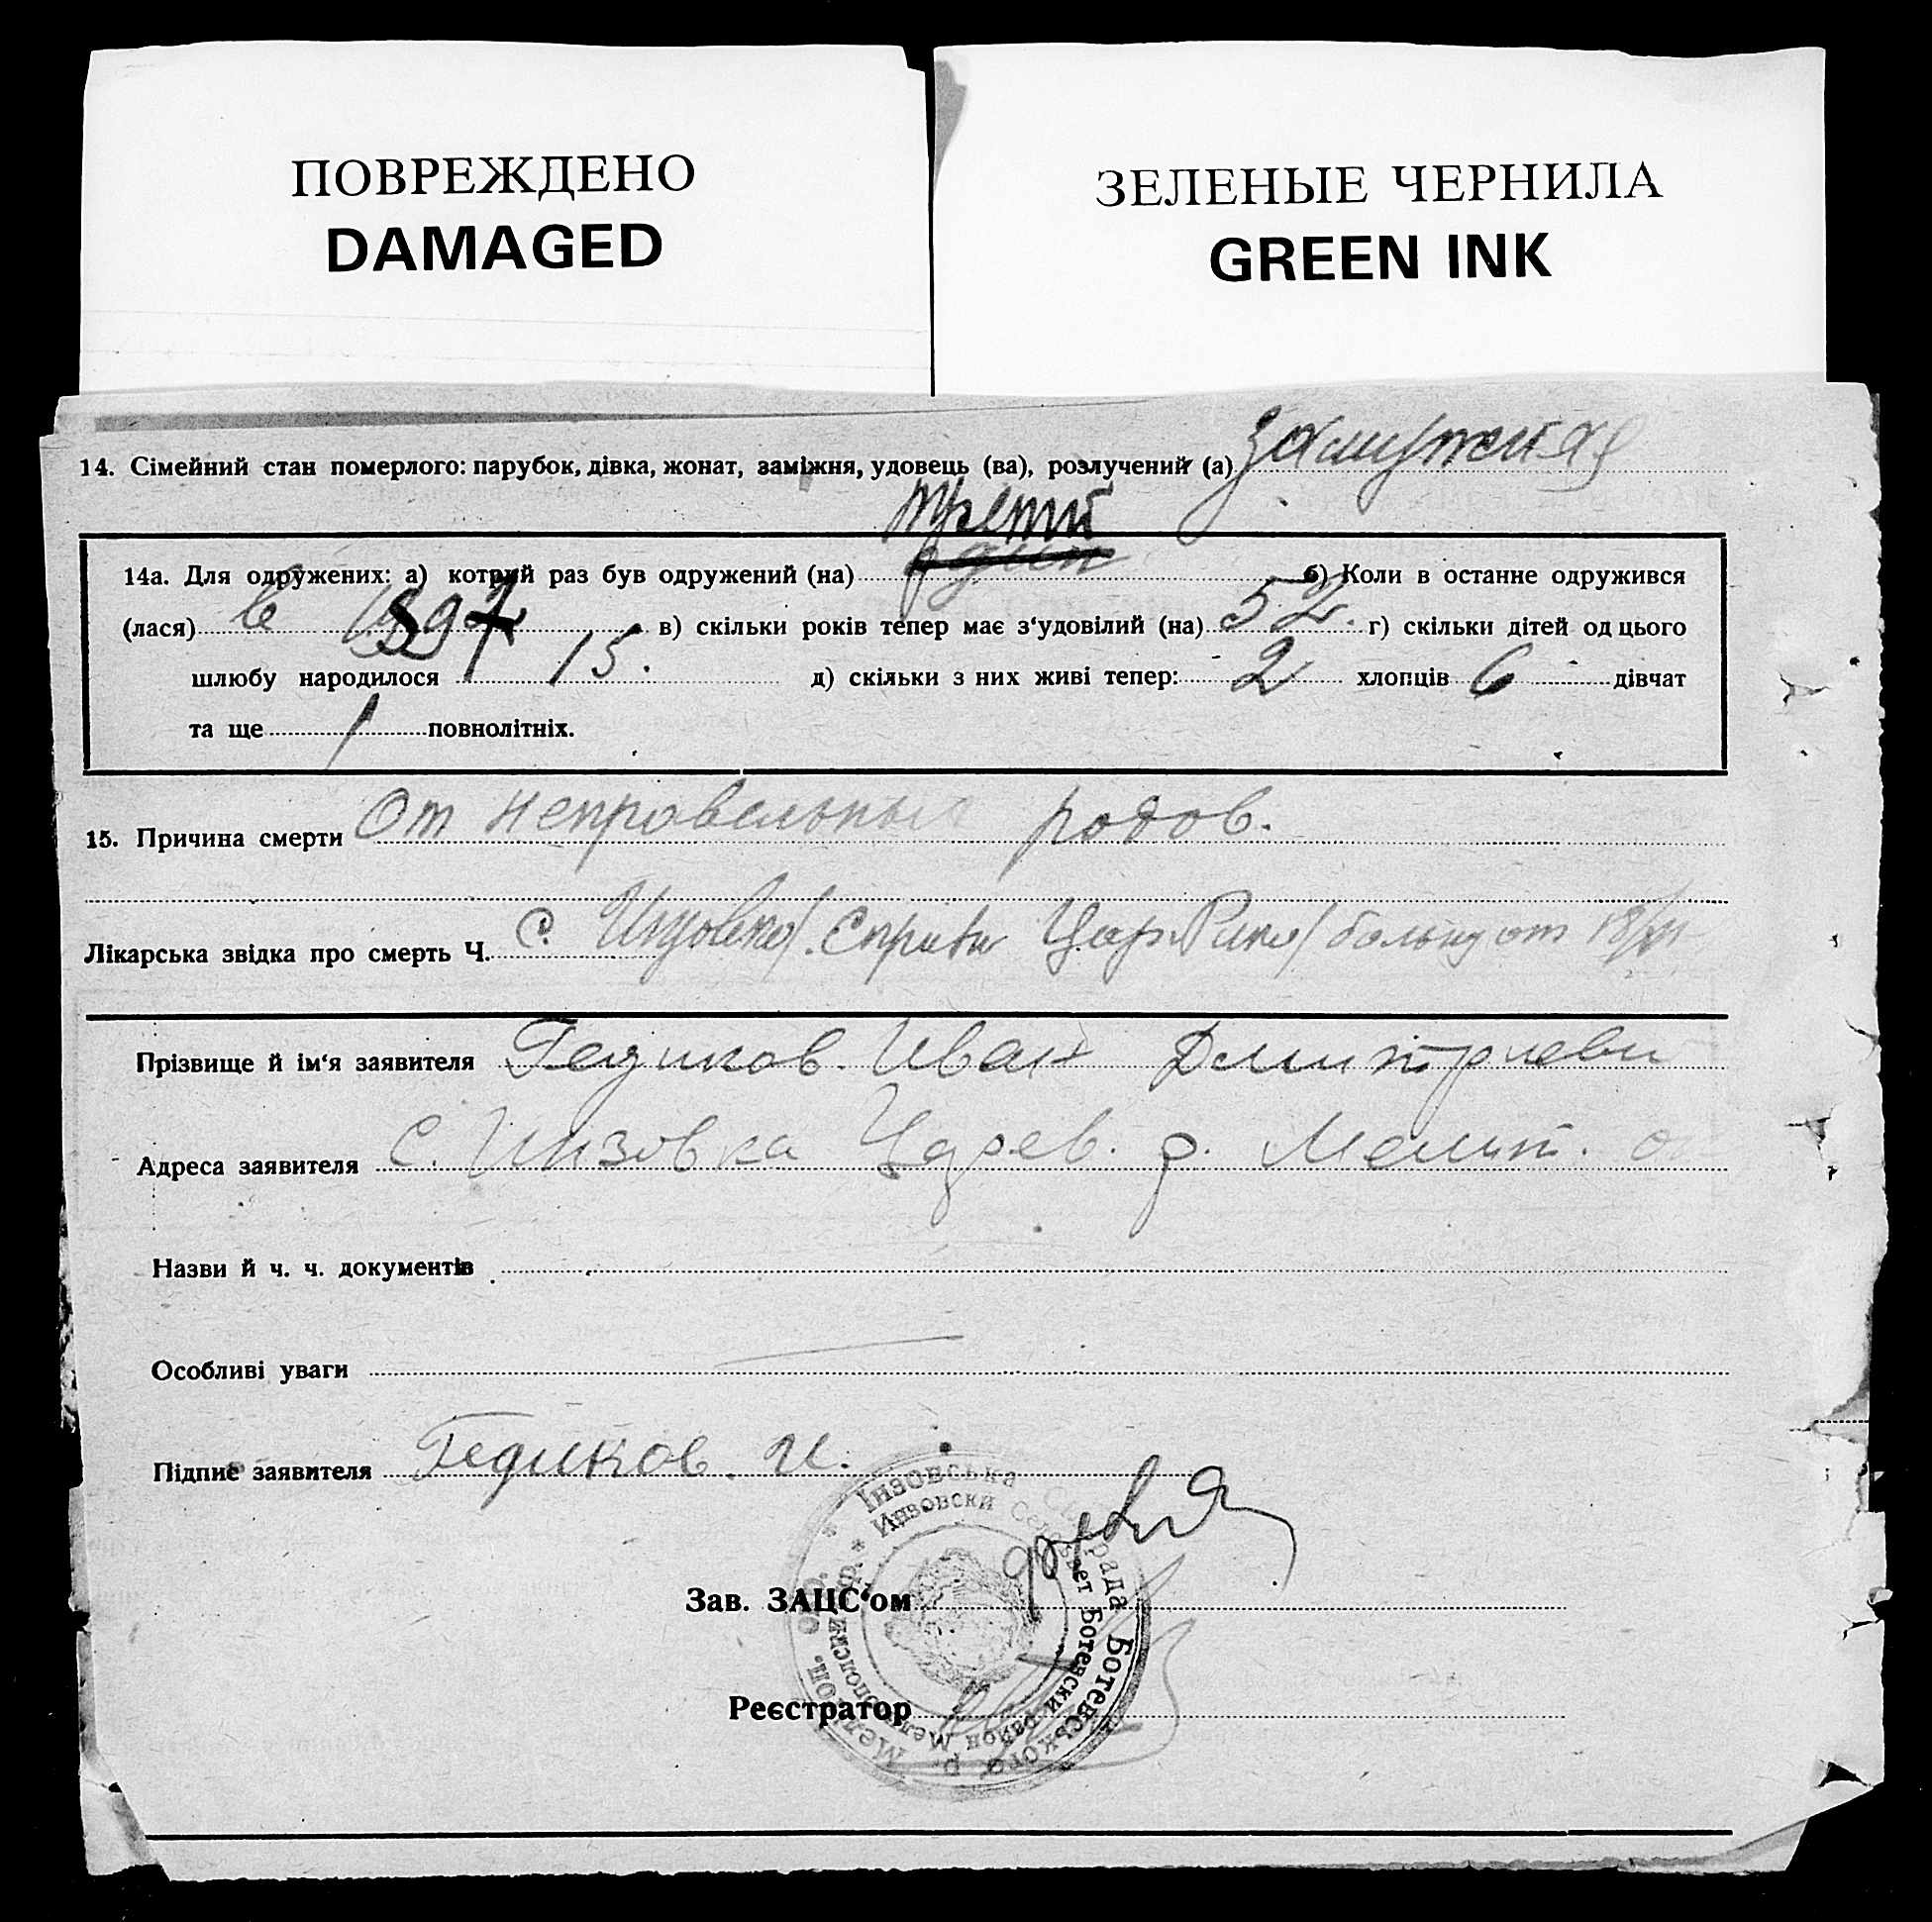 ПОВРЕЖДЕНО
DAMAGED
ЗЕЛЕНЫЕ ЧЕРНИЛА
GREEN INK
14. Сімейний стан померлого: парубок, дівка, жонат, заміжня, удовець (ва), розлучений (а) замужняя
третий
один
14а. Для одружених: а) котрий раз був одружений (на) б) Коли в останне одружився
(лася) в 1897 в) скільки років тепер має з‘удовілий (на) 52. г) скільки дітей од цього
шлюбу народилося 15. д) скільки з них живі тепер: 2 хлопців 6 дівчат
та ще 1 повнолітніх.
15. Причина смерти От неправельных родов.
Лікарська звідка про смерть Ч. с. Инзовка
Прізвище й ім‘я заявителя Гедиков. Иван Дмитриеви
Адреса заявителя с. Инзовка Царев. р. Мелит. о
Назви й ч. ч. документів
Особливі уваги
Підпис заявителя Гедиков. И.
Зав. ЗАЦС‘ом
Реєстратор
Інзовська Сільрада Ботевського р. Мелітоп. Окр.
Инзовски Селсъвет Ботевски район Мелитополски окр.